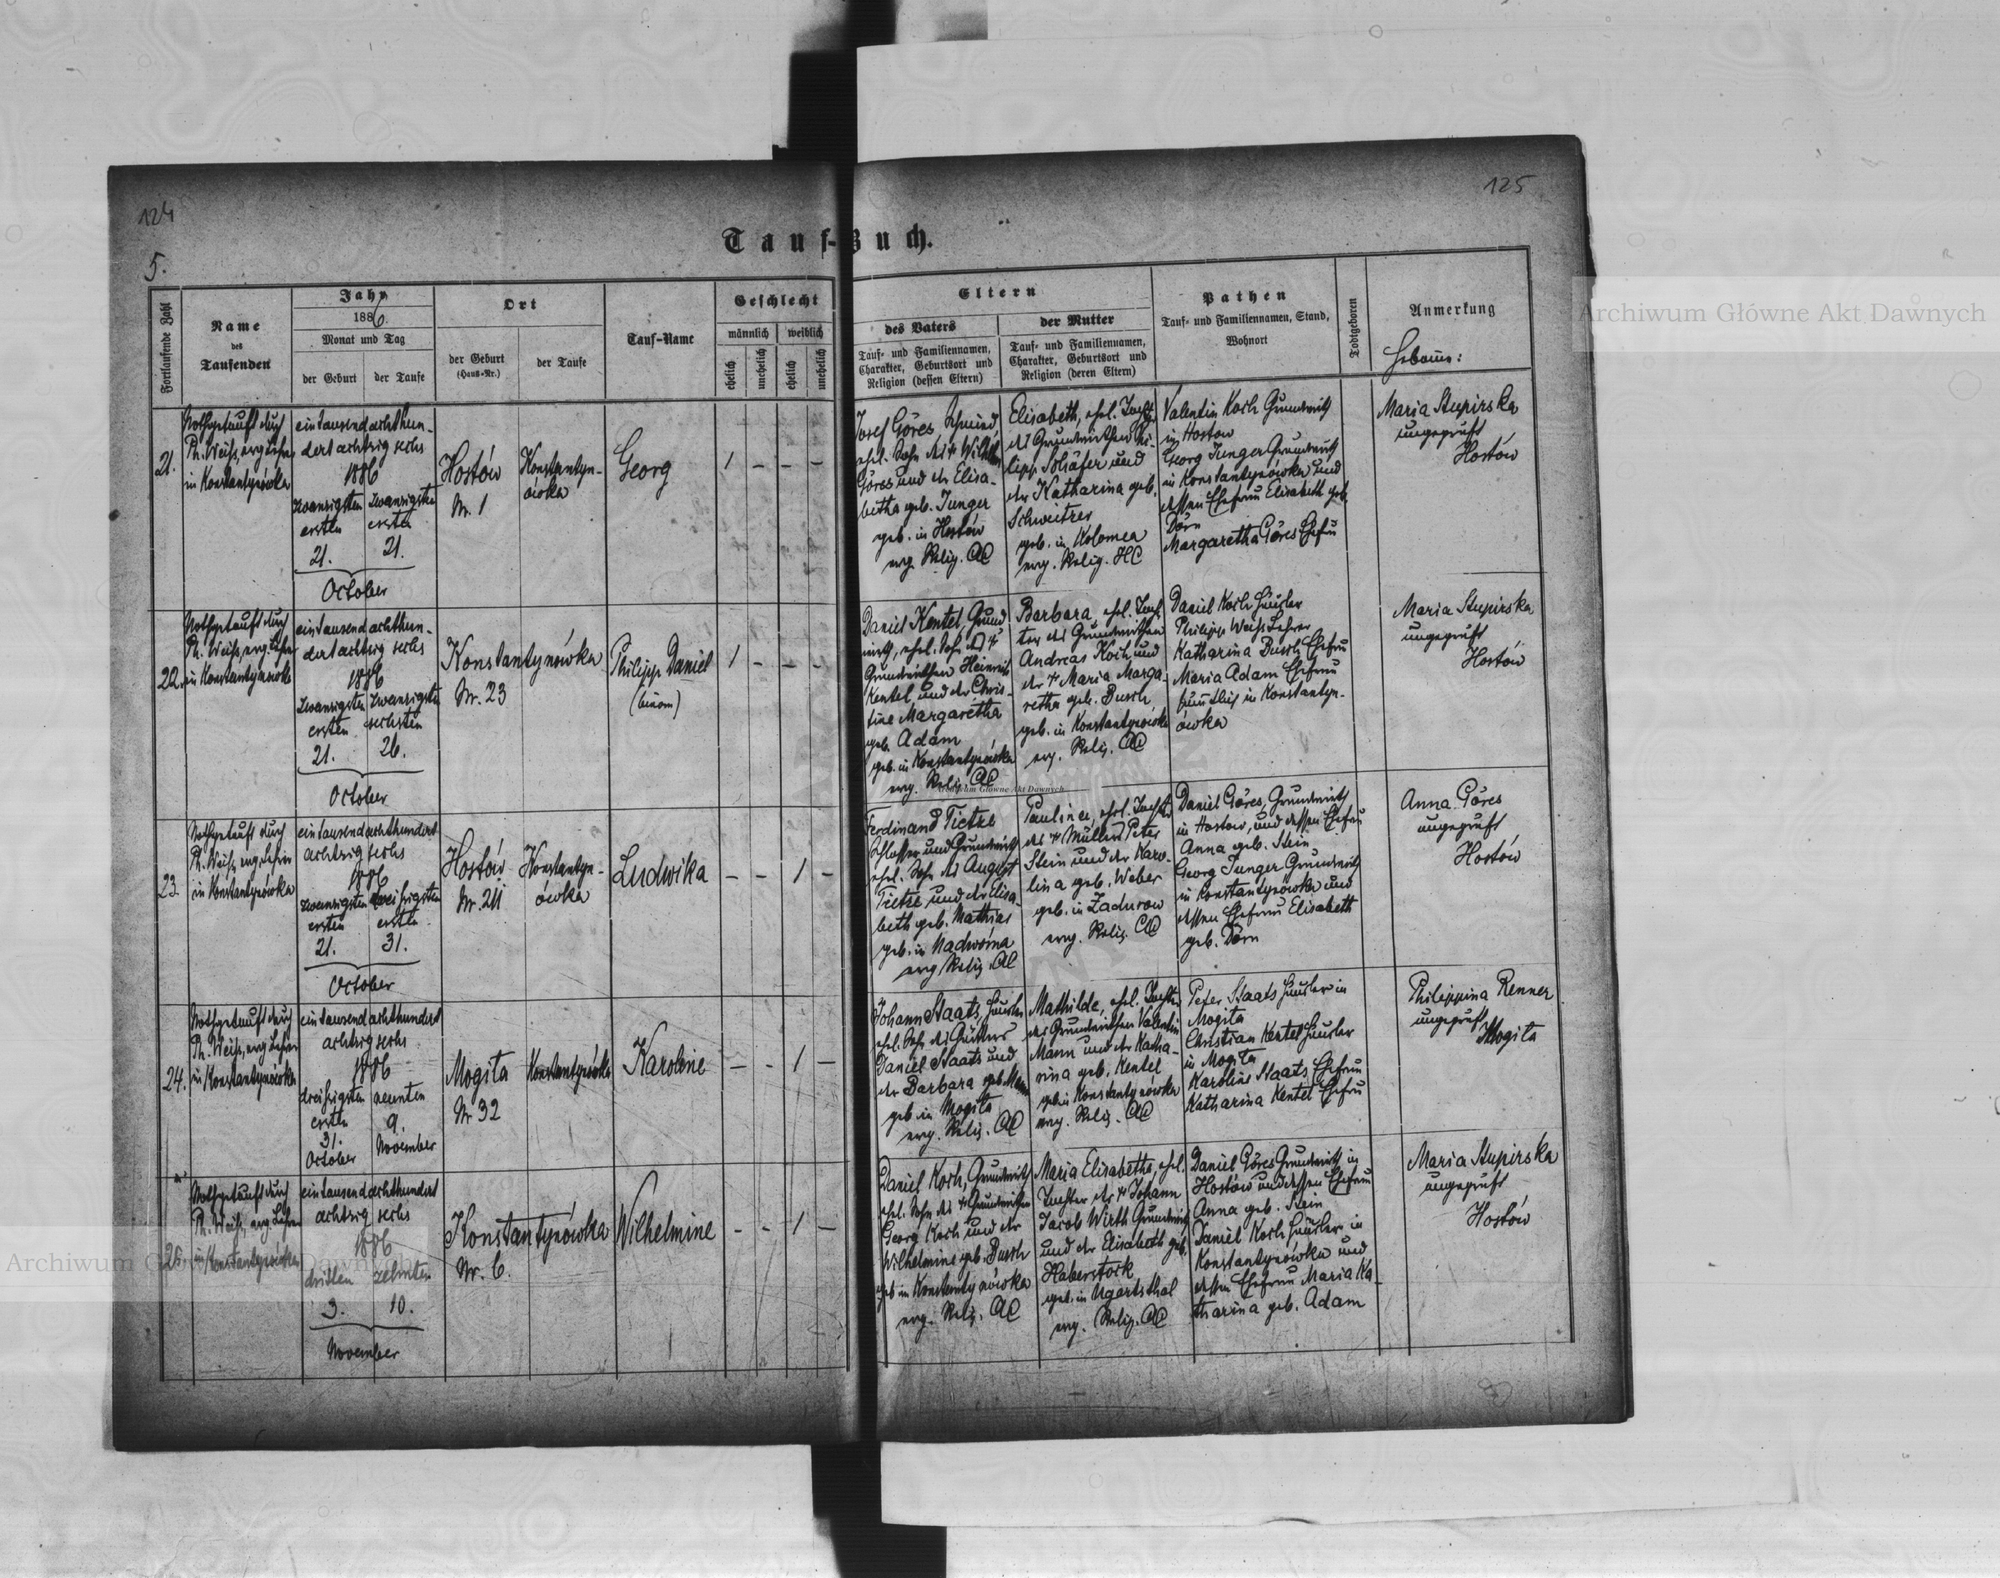 124
125
5.
Tauf-Buch.
Fortlaufende Zahl
Name
des
Taufenden
Jahr
1886.
Monat und Tag
der Geburt
der Taufe
Ort
der Geburt
(Haus-Nr.)
der Taufe
Tauf-Name
Geschlecht
männlich
weiblich
ehelich
unehelich
ehelich
unehelich
Eltern
des Vaters
Tauf- und Familiennamen,
Charakter, Geburtsort und
Religion (dessen Eltern)
der Mutter
Tauf- und Familiennamen,
Charakter, Geburtsort und
Religion (deren Eltern)
Pathen
Tauf- und Familiennamen, Stand,
Wohnort
Todtgeboren
Anmerkung
Hebamme:
21.
Nothgetauft durch
Ph. Weiß, evg. Lehrer
in Konstantynówka
eintausendachthun-
dertachtzig sechs
1886
zwanzigsten
ersten
21.
zwanzigsten
ersten
21.
October
Hostów
Nr. 1
Konstantyn-
ówka
Georg
1 - - -
Josef Göres, Schmied,
ehel. Sohn des † Wilhelm
Göres und der Elisa-
betha geb. Junger
geb. in Hostów
evg. Relig. AC
Elisabeth, ehel. Tochter
des Grundwirthen Phi-
lipp Schäfer und
der Katharina geb.
Schweitzer
geb. in Kolomea
evg. Relig. HC
Valentin Koch Grundwirth
in Hostow
Georg Junger Grundwirth
in Konstantynówka und
dessen Ehefrau Elisabeth geb.
Dörn
Margaretha Göres Ehefrau
Maria Stupirska
ungeprüft
Hostów
22.
Nothgetauft durch
Ph. Weiß, evg. Lehrer
in Konstantynówka
eintausend achthun-
dertachtzig sechs
1886
zwanzigsten
ersten
21.
zwanzigsten
sechsten
26.
October
Konstantynówka
Nr. 23
Philipp Daniel
(binom)
1 - - -
Daniel Kentel, Grund
wirth, ehel. Sohn des †
Grundwirthen Heinrich
Kentel und der Chris-
tine Margaretha
geb. Adam
geb. in Konstantynówka
evg. Relig. AC
Barbara, ehel. Toch
ter des Grundwirthen
Andreas Koch und
der † Maria Marga-
retha geb. Busch
geb. in Konstantynówka
evg. Relig. AC
Daniel Koch Häusler
Philipp Weiß Lehrer
Katharina Busch Ehefrau
Maria Adam Ehefrau
sämtlich in Konstantyn-
ówka
Maria Stupirska
ungeprüft
Hostów
23.
Nothgetauft durch
Ph. Weiß, evg. Lehrer
in Konstantynówka
eintausendachthundert
achtzig sechs
1886
zwanzigsten
ersten
21.
dreißigsten
ersten
31.
October
Hostów
Nr. 24
Konstantyn-
ówka
Ludwika
- - 1 -
Ferdinand Tietze
Schlosser und Grundwirth
ehel. Sohn des August
Tietze und der Elisa-
beth geb. Mathias
geb. in Nadworna
evg Relig. AC
Pauline, ehel. Tochter
des † Müllers Peter
Stein und der Karo-
lina geb. Weber
geb. in Zadurow
evg. Relig. AC
Daniel Göres, Grundwirth
in Hostow, und dessen Ehefrau
Anna geb. Stein
Georg Junger Grundwirth
in Konstantynówka und
dessen Ehefrau Elisabeth
geb. Dörn
Anna Göres
ungeprüft
Hostów
24.
Nothgetauft durch
Ph. Weiß, evg. Lehrer
in Konstantynówka
eintausendachthundert
achtzig sechs
1886
dreißigsten
ersten
31.
October
neunten
9.
November
Mogita
Nr 32
Konstantynówka
Karoline
- - 1 -
Johann Staats, Häusler
ehel. Sohn des
Daniel Staats und
der Barbara geb. Mann
geb. in Mogita
evg. Relig. AC
Mathilde, ehel. Tochter
des Grundwirthen Valentin
Mann und der Katha-
rina geb. Kentel
geb. in Konstantynówka
evg. Relig. AC
Peter Staats Häusler in
Mogita
Christian Kentel Häusler
in Mogita
Karoline Staats Ehefrau
Katharina Kentel Ehefrau
Philippina Renner
ungeprüft
Mogita
25.
Nothgetauft durch
Ph. Weiß, evg. Lehrer
in Konstantynówka
eintausendachthundert
achtzig sechs
1886
dritten
3.
zehnten
10.
November
Konstantynówka
Nr. 6.
Wilhelmine
- - 1 -
Daniel Koch, Grundwirth
ehel. Sohn des † Grundwirthen
Georg Koch und der
Wilhelmine geb. Busch
geb in Konstantynowka
evg. Relig. AC
Maria Elisabetha, ehel.
Tochter des † Johann
Jacob Wirth Grundwirth
und der Elisabeth geb.
Haberstock
geb. in Ugartsthal
evg. Relig. AC
Daniel Göres Grundwirth in
Hostów und dessen Ehefrau
Anna geb. Stein
Daniel Koch Häusler in
Konstantynówka und
dessen Ehefrau Maria Ka-
tharina geb. Adam
Maria Stupirska
ungeprüft
Hostów
Archiwum Główne Akt Dawnych
Archiwum Główne Akt Dawnych
Archiwum Główne Akt Dawnych